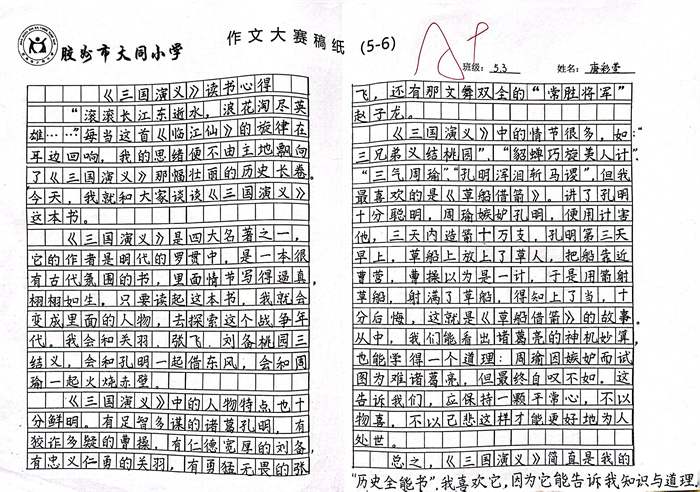 胶州市大同小学
作文大赛稿纸 (5-6)
A+
班级: 5.3 姓名:
《三国演义》读书心得
“滚滚长江东逝水，浪花淘尽英
雄……”每当这首《临江仙》的旋律在
耳边回响，我的思绪便不由主地飘向
了《三国演义》那幅壮丽的历史长卷。
今天，我就和大家谈谈《三国演义》
这本书。
《三国演义》是四大名著之一，
它的作者是明代的罗贯中，是一本很
有古代氛围的书，里面情节写得逼真，
栩栩如生。只要读起这本书，我就会
变成里面的人物，去探索这个战争年
代。我会和关羽、张飞、刘备桃园三
结义，会和孔明一起借东风，会和周
瑜一起火烧赤壁。
《三国演义》中的人物特点也十
分鲜明。有足智多谋的诸葛孔明，有
狡诈多疑的曹操，有仁德宽厚的刘备，
有忠义仁勇的关羽，有勇猛无畏的张
飞，还有那文武双全的“常胜将军”
赵子龙。
《三国演义》中的情节很多，如：“
三兄弟义结桃园”，“貂蝉巧旋美人计”，
“三气周瑜”、“孔明浑泪斩马谡”，但我
最喜欢的是《草船借箭》。讲了孔明
十分聪明，周瑜嫉妒孔明，便用计害
他，三天内造箭十万支，孔明第三天
早上，草船上放上了草人，把船靠近
曹营，曹操以为是一计，于是用箭射
草船，射满了草船，得知上了当，十
分后悔，这就是《草船借箭》的故事。
从中，我们能看出诸葛亮的神机妙算，
也能学得一个道理：周瑜因嫉妒而试
图为难诸葛亮，但最终自叹不如。这
告诉我们，应保持一颗平常心，不以
物喜，不以己悲这样才能更好地为人
处世。
总之，《三国演义》简直是我的
“历史全能书”，我喜欢它，因为它能告诉我知识与道理